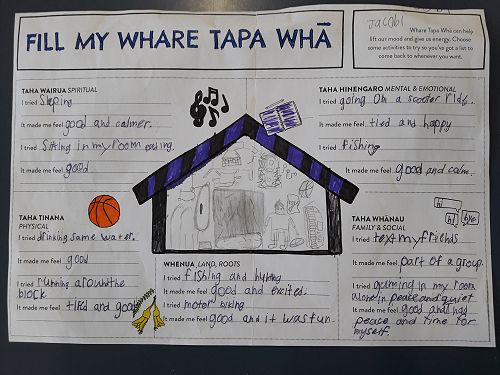 FILL MY WHARE TAPA WHĀ
Jacobi
Whare Tapa Whā can help
lift our mood and give us energy. Choose
some activities to try so you've got a list to
come back to whenever you want.
TAHA WAIRUA SPIRITUAL
I tried Sleping
It made me feel good and calmer.
I tried Sitting in my room
It made me feel good
TAHA HINENGARO MENTAL & EMOTIONAL
I tried going on a scooter ride.
It made me feel tied and happy
I tried fishing
It made me feel good and calm.
TAHA TINANA
PHYSICAL
I tried drinking some water.
It made me feel good
I tried running around the
block
It made me feel tired and good
WHENUA LAND, ROOTS
I tried fishing and hunting
It made me feel good and excited.
I tried motor biking
It made me feel good and it was fun.
TAHA WHĀNAU
FAMILY & SOCIAL
I tried text my friends
It made me feel part of a group.
I tried gaming in my room
alone in peace and quiet
It made me feel good and had
peace and time for
myself.
hi
hi
bye